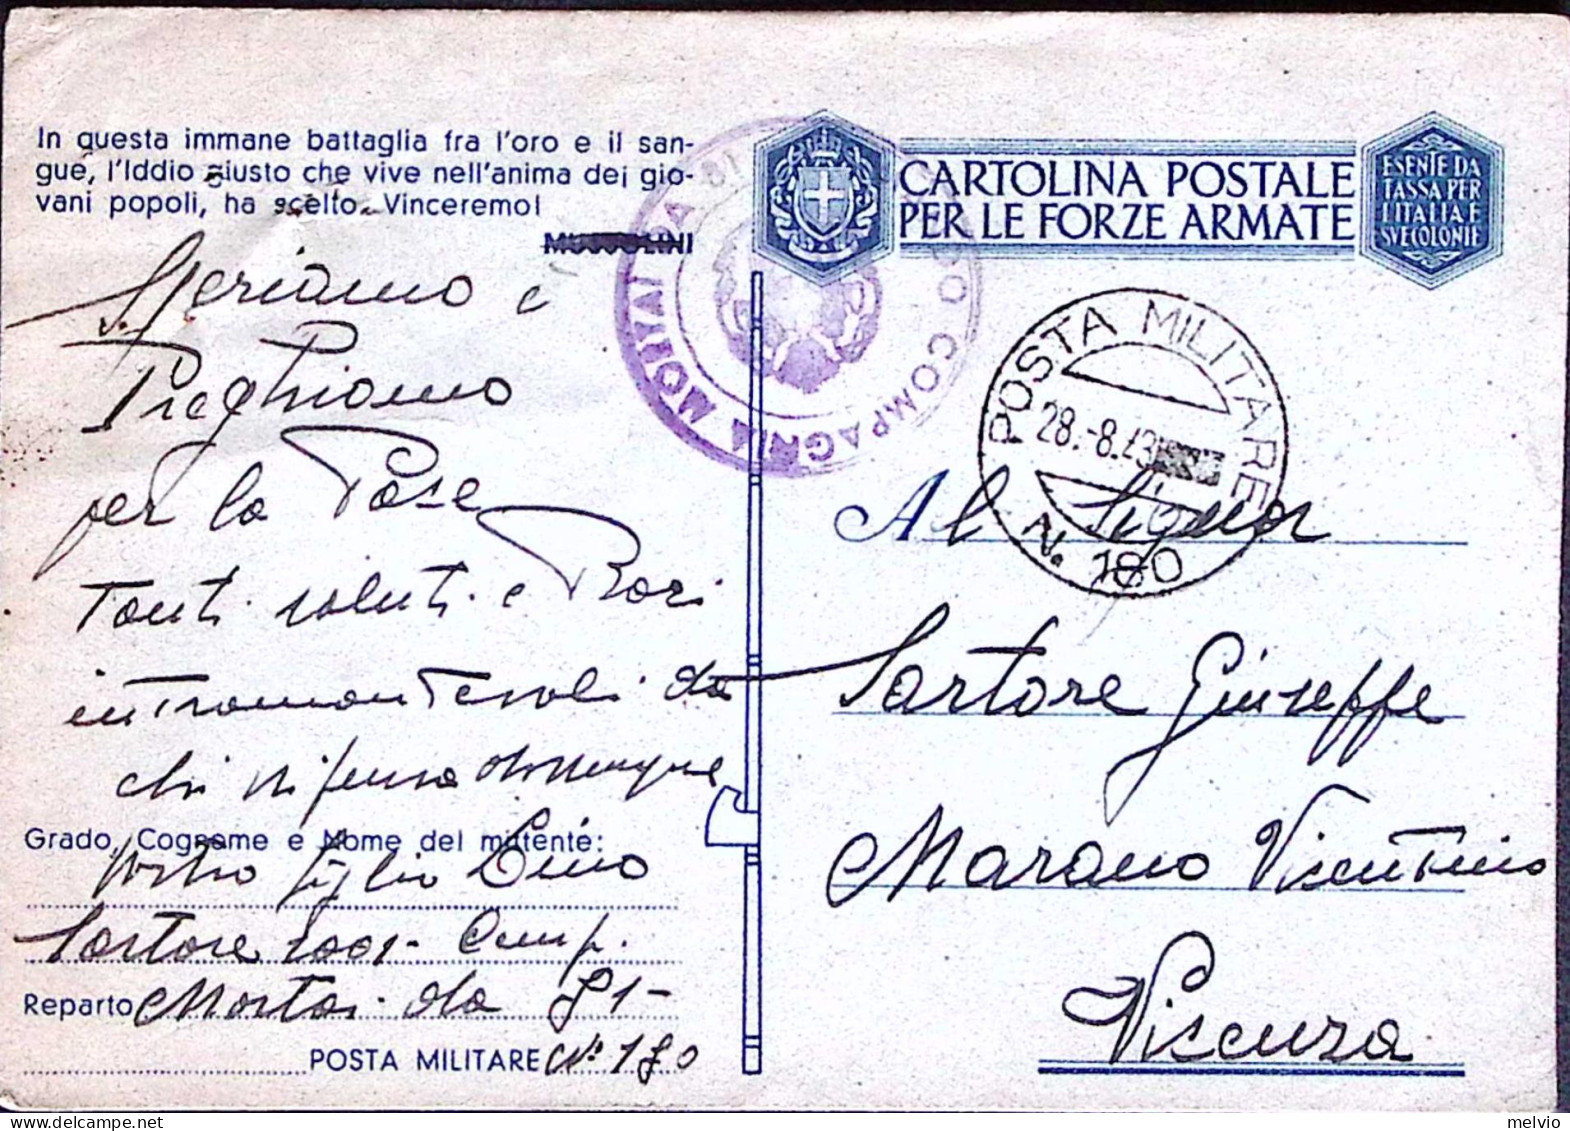 In questa immane battaglia fra l'oro e il san-
gue, l'Iddio giusto che vive nell'anima dei gio-
vani popoli, ha scelto. Vinceremo!
MUSSOLINI
Speriamo e
Preghiamo
per la Pase
Tanti saluti e Baci
intramontevoli da
chi vi pensa dovunque
Grado, Cognome e Nome del mittente:
vostro figlio Lino
Sartore 1001- Comp.
Reparto Mortai da 81-
POSTA MILITARE N° 180
COMPAGNIA MORTAI DA 81
CARTOLINA POSTALE
PER LE FORZE ARMATE
ESENTE DA
TASSA PER
L'ITALIA E
SVE COLONIE
POSTA MILITARE
28.-8.43
N. 180
Al Signor
Sartore Giuseppe
Marano Vicentino
Vicenza
melvio